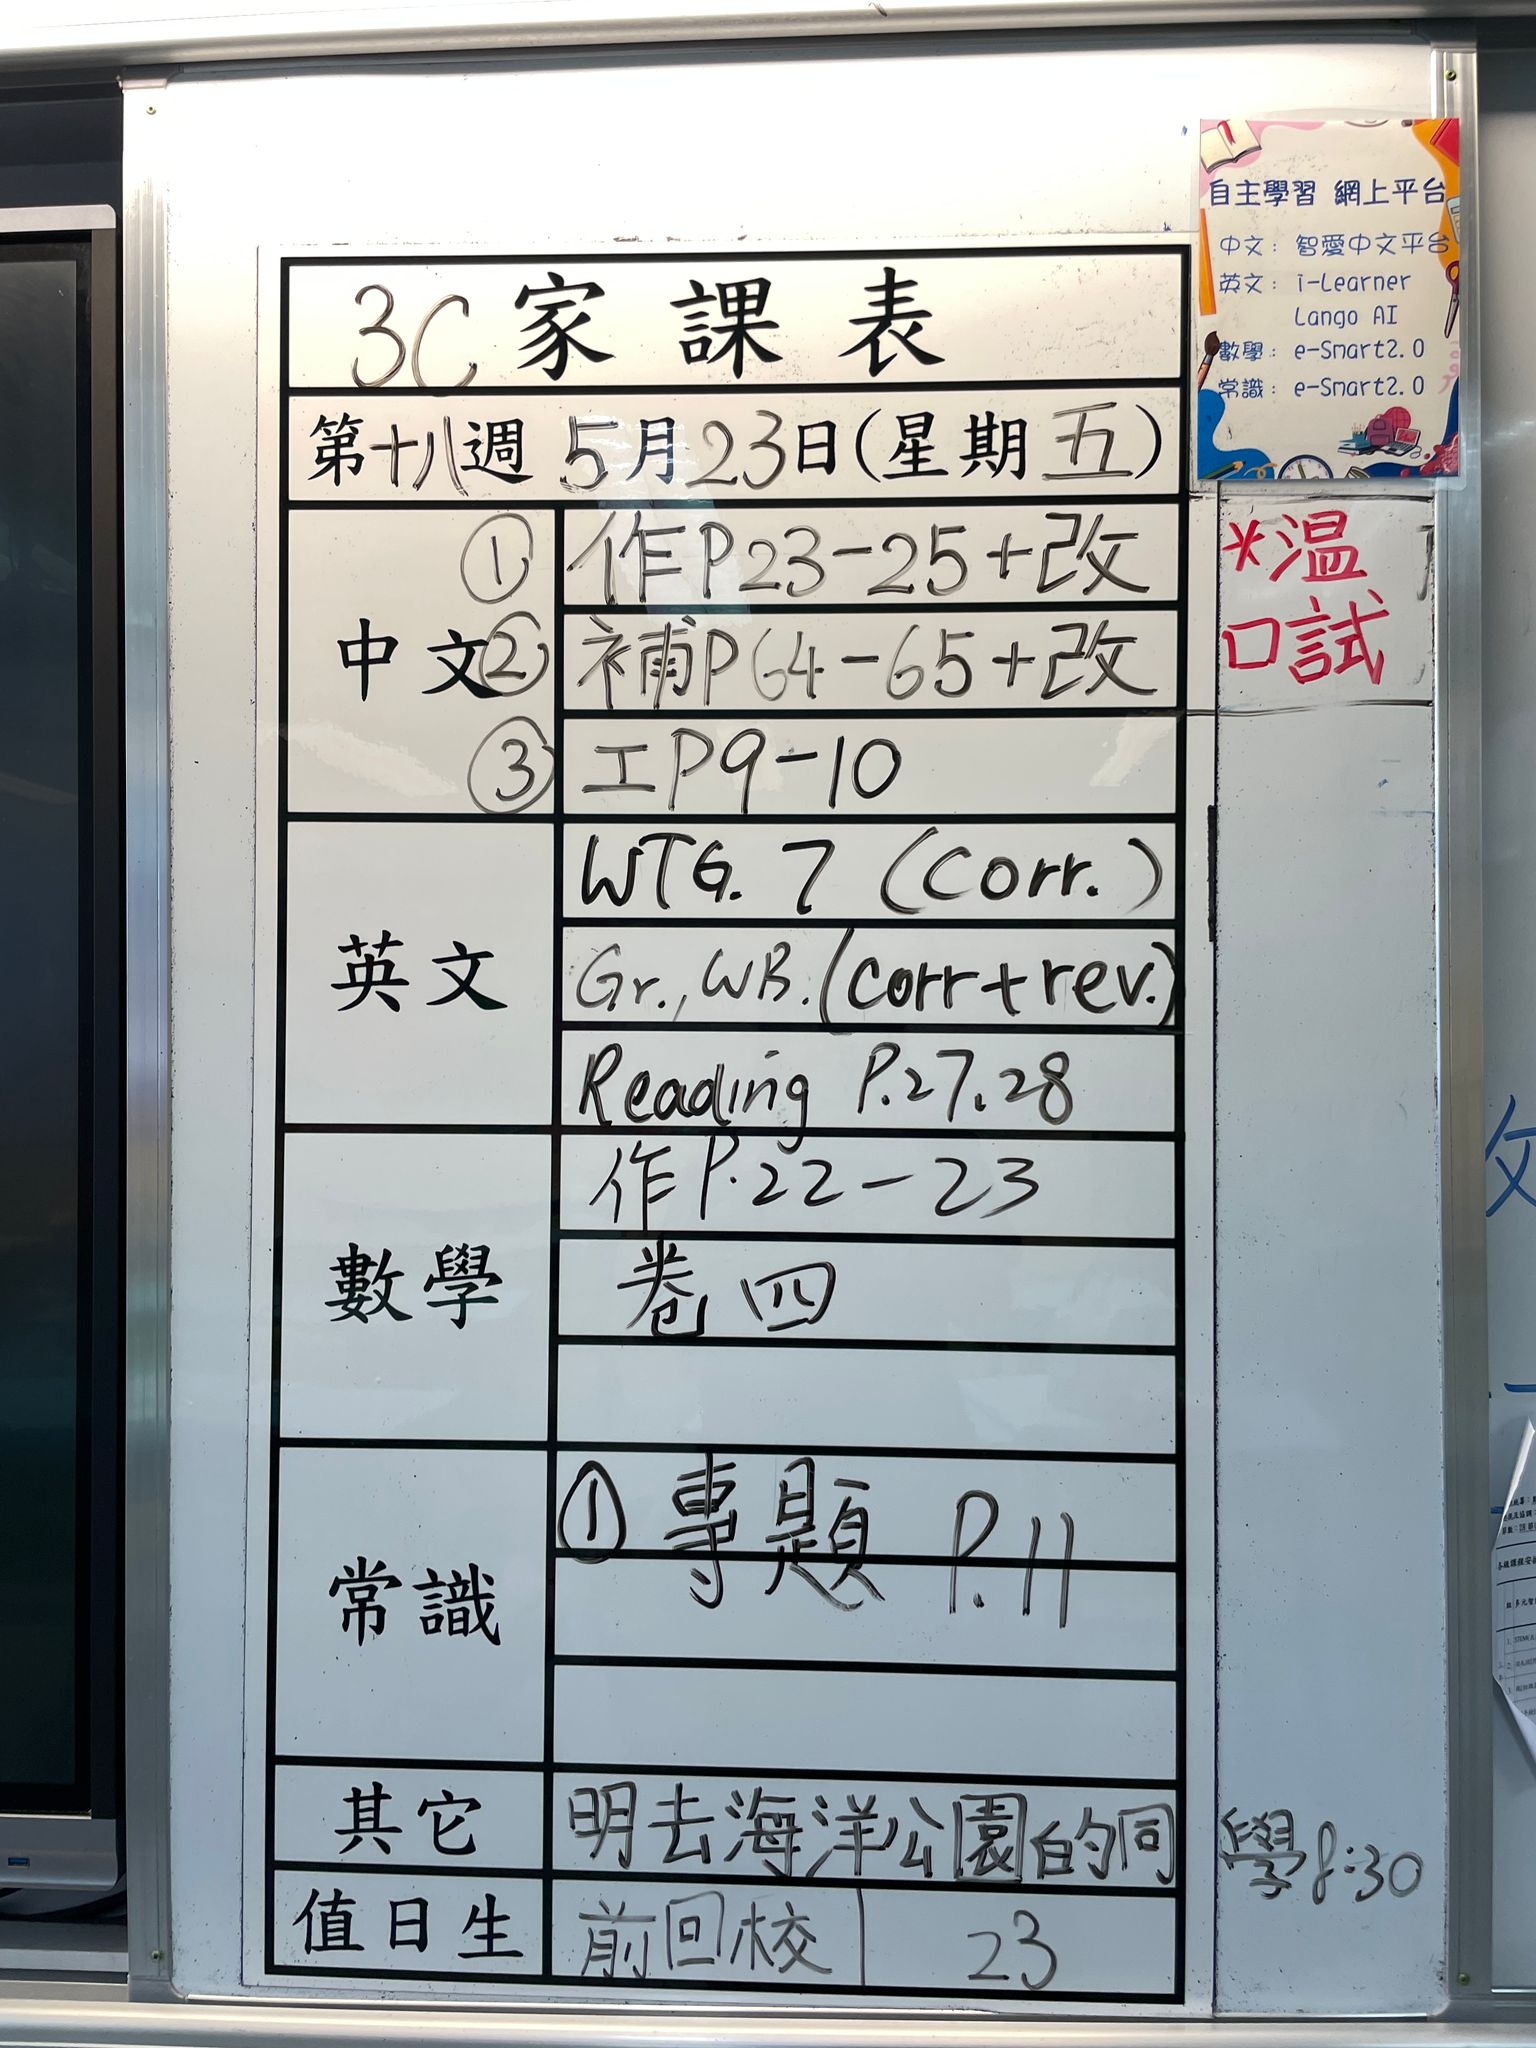 自主學習 網上平台
中文：智愛中文平台
英文：i-Learner
Lango AI
數學：e-Smart2.0
常識：e-Smart2.0
3C 家課表
第十八週 5月23日(星期五)
中文
① 作P23-25+改
② 補P64-65+改
③ 工P9-10
*溫
口試
英文
WTG. 7 (Corr.)
Gr., WB. (corr+rev.)
Reading P.27.28
數學
作P.22-23
卷四
常識
① 專題 P.11
其它
明去海洋公園的同學8:30
值日生
前回校 | 23